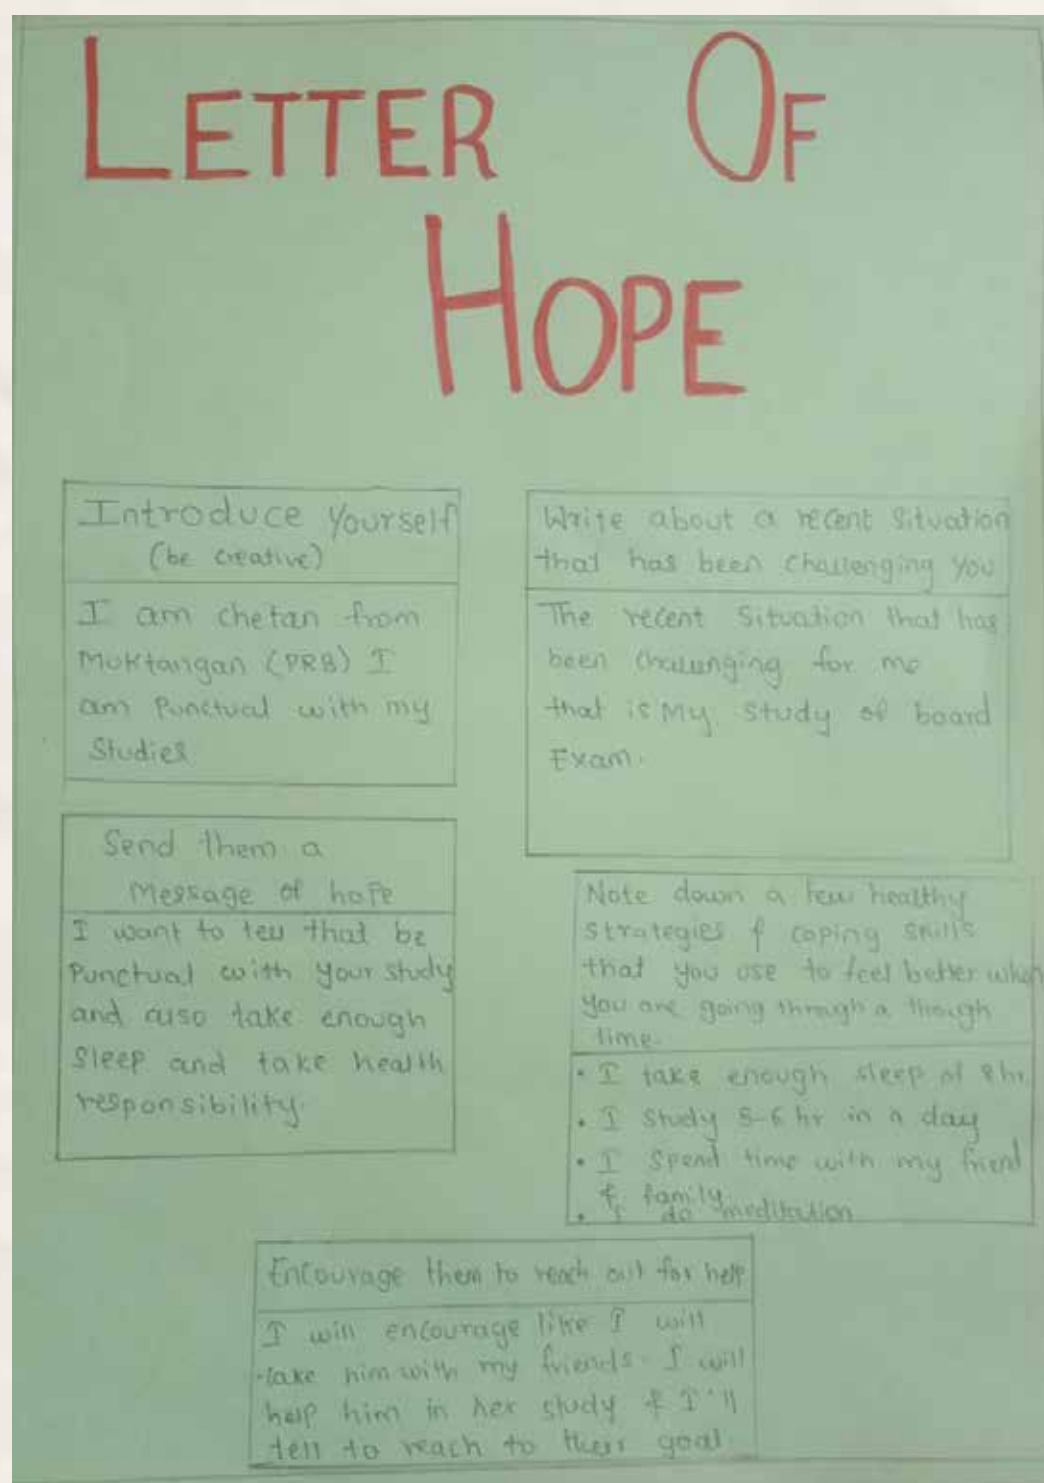 LETTER OF
HOPE
Introduce yourself
(be creative)
I am chetan from
Muktangan (PRB) I
am Punctual with my
Studies
Write about a recent situation
that has been challenging you
The recent Situation that has
been challenging for me
that is My Study of board
Exam.
Send them a
Message of hope
I want to tell that be
Punctual with your study
and also take enough
Sleep and take health
responsibility.
Note down a few healthy
strategies & coping skills
that you use to feel better when
you are going through a though
time.
• I take enough sleep of 8 hr
• I Study 5-6 hr in a day
• I Spend time with my friend
& family
• I do meditation
Encourage them to reach out for help
I will encourage like I will
take him with my friends. I will
help him in her study & I'll
tell to reach to their goal.